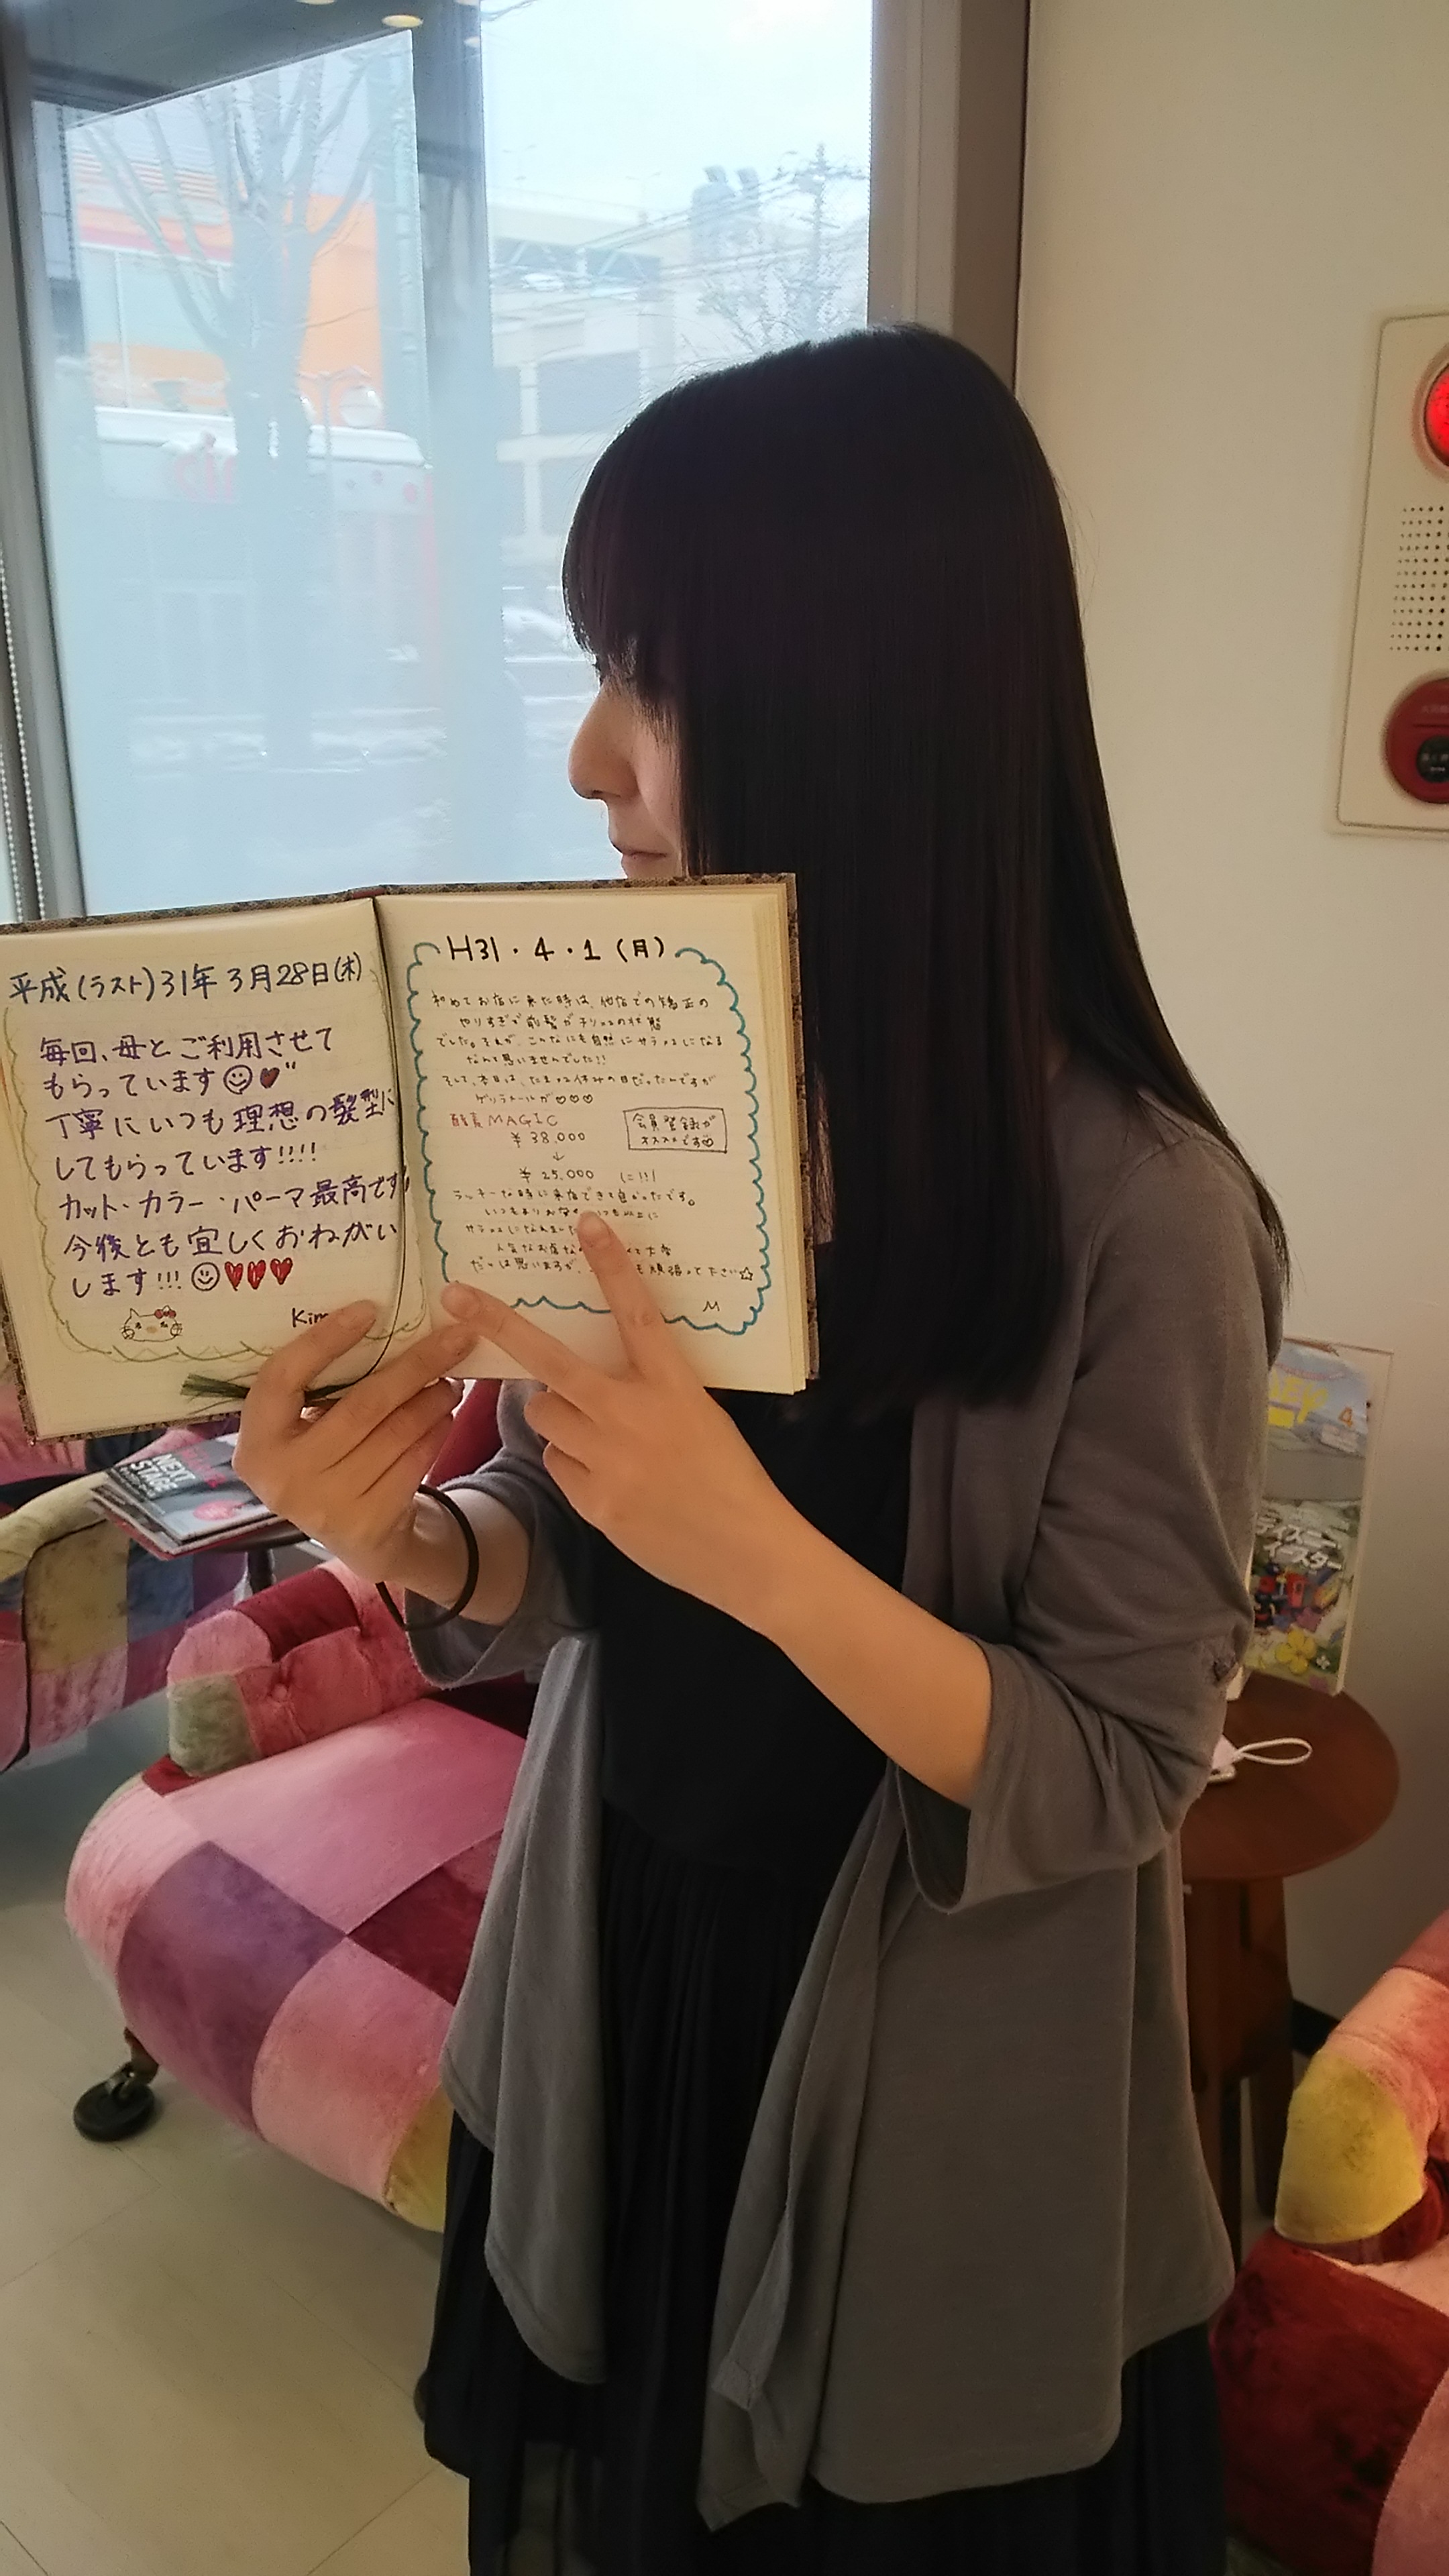 平成(ラスト)31年3月28日(木)
毎回、母とご利用させて
もらっています
丁寧にいつも理想の髪型に
してもらっています!!!!
カット・カラー・パーマ最高です!
今後とも宜しくおねがい
します!!!
Kim
H31・4・1(月)
初めてお店に来た時は、他店での矯正の
やりすぎで前髪がチリチリの状態
でした。それが、こんなにも自然にサラサラになる
なんて思いませんでした!!
そして、本日は、たまたま休みの日だったんですが
ゲリラセールが♡♡♡
酵素MAGIC
¥38,000
↓
¥25,000 に!!!
会員登録が
オススメです
ラッキーな時に来店できて良かったです。
いつも以上に
サラサラになれました
人気なお店な 大変
だとは思いますが、 も頑張って下さい☆
M
NEXT
STAGE
4
ディズニー
イースター